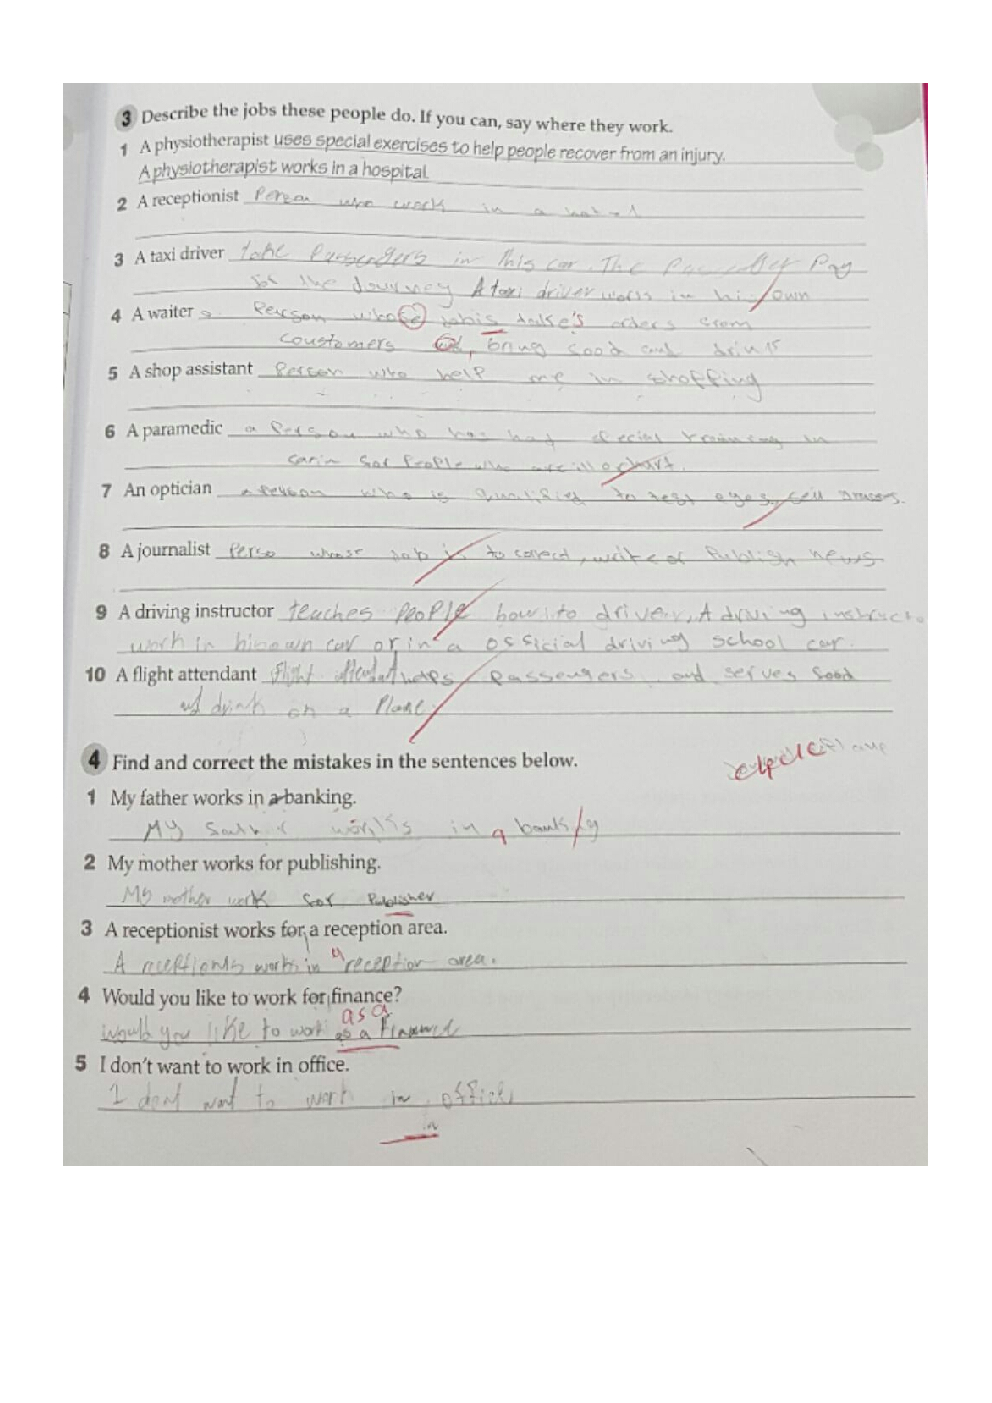 3 Describe the jobs these people do. If you can, say where they work.
1 A physiotherapist uses special exercises to help people recover from an injury.
A physiotherapist works in a hospital.
2 A receptionist Person who work in a
3 A taxi driver take Passengers in this car. The Pay
for the Journey A taxi driver works in his own
4 A waiter Person who take's orders from
coustomers bring food and drinks
5 A shop assistant Person who help me in shopping
6 A paramedic a Person who has had special training in
for People who are ill or hurt.
7 An optician a Person who is qualified to test eyes, sell
8 A journalist Perso whose job is to collect, write or Publish news
9 A driving instructor teaches People how to driver, A driving instructo
work in his own car or in a official driving school car.
10 A flight attendant flight attendat helps Passengers and serves food
and drink on a Plane.
4 Find and correct the mistakes in the sentences below.
1 My father works in a banking.
My works in a banking
2 My mother works for publishing.
My mother work for Publisher
3 A receptionist works for a reception area.
A works in a reception area.
4 Would you like to work for finance?
as a
would you like to work as a
5 I don't want to work in office.
I dont want to work in office
in